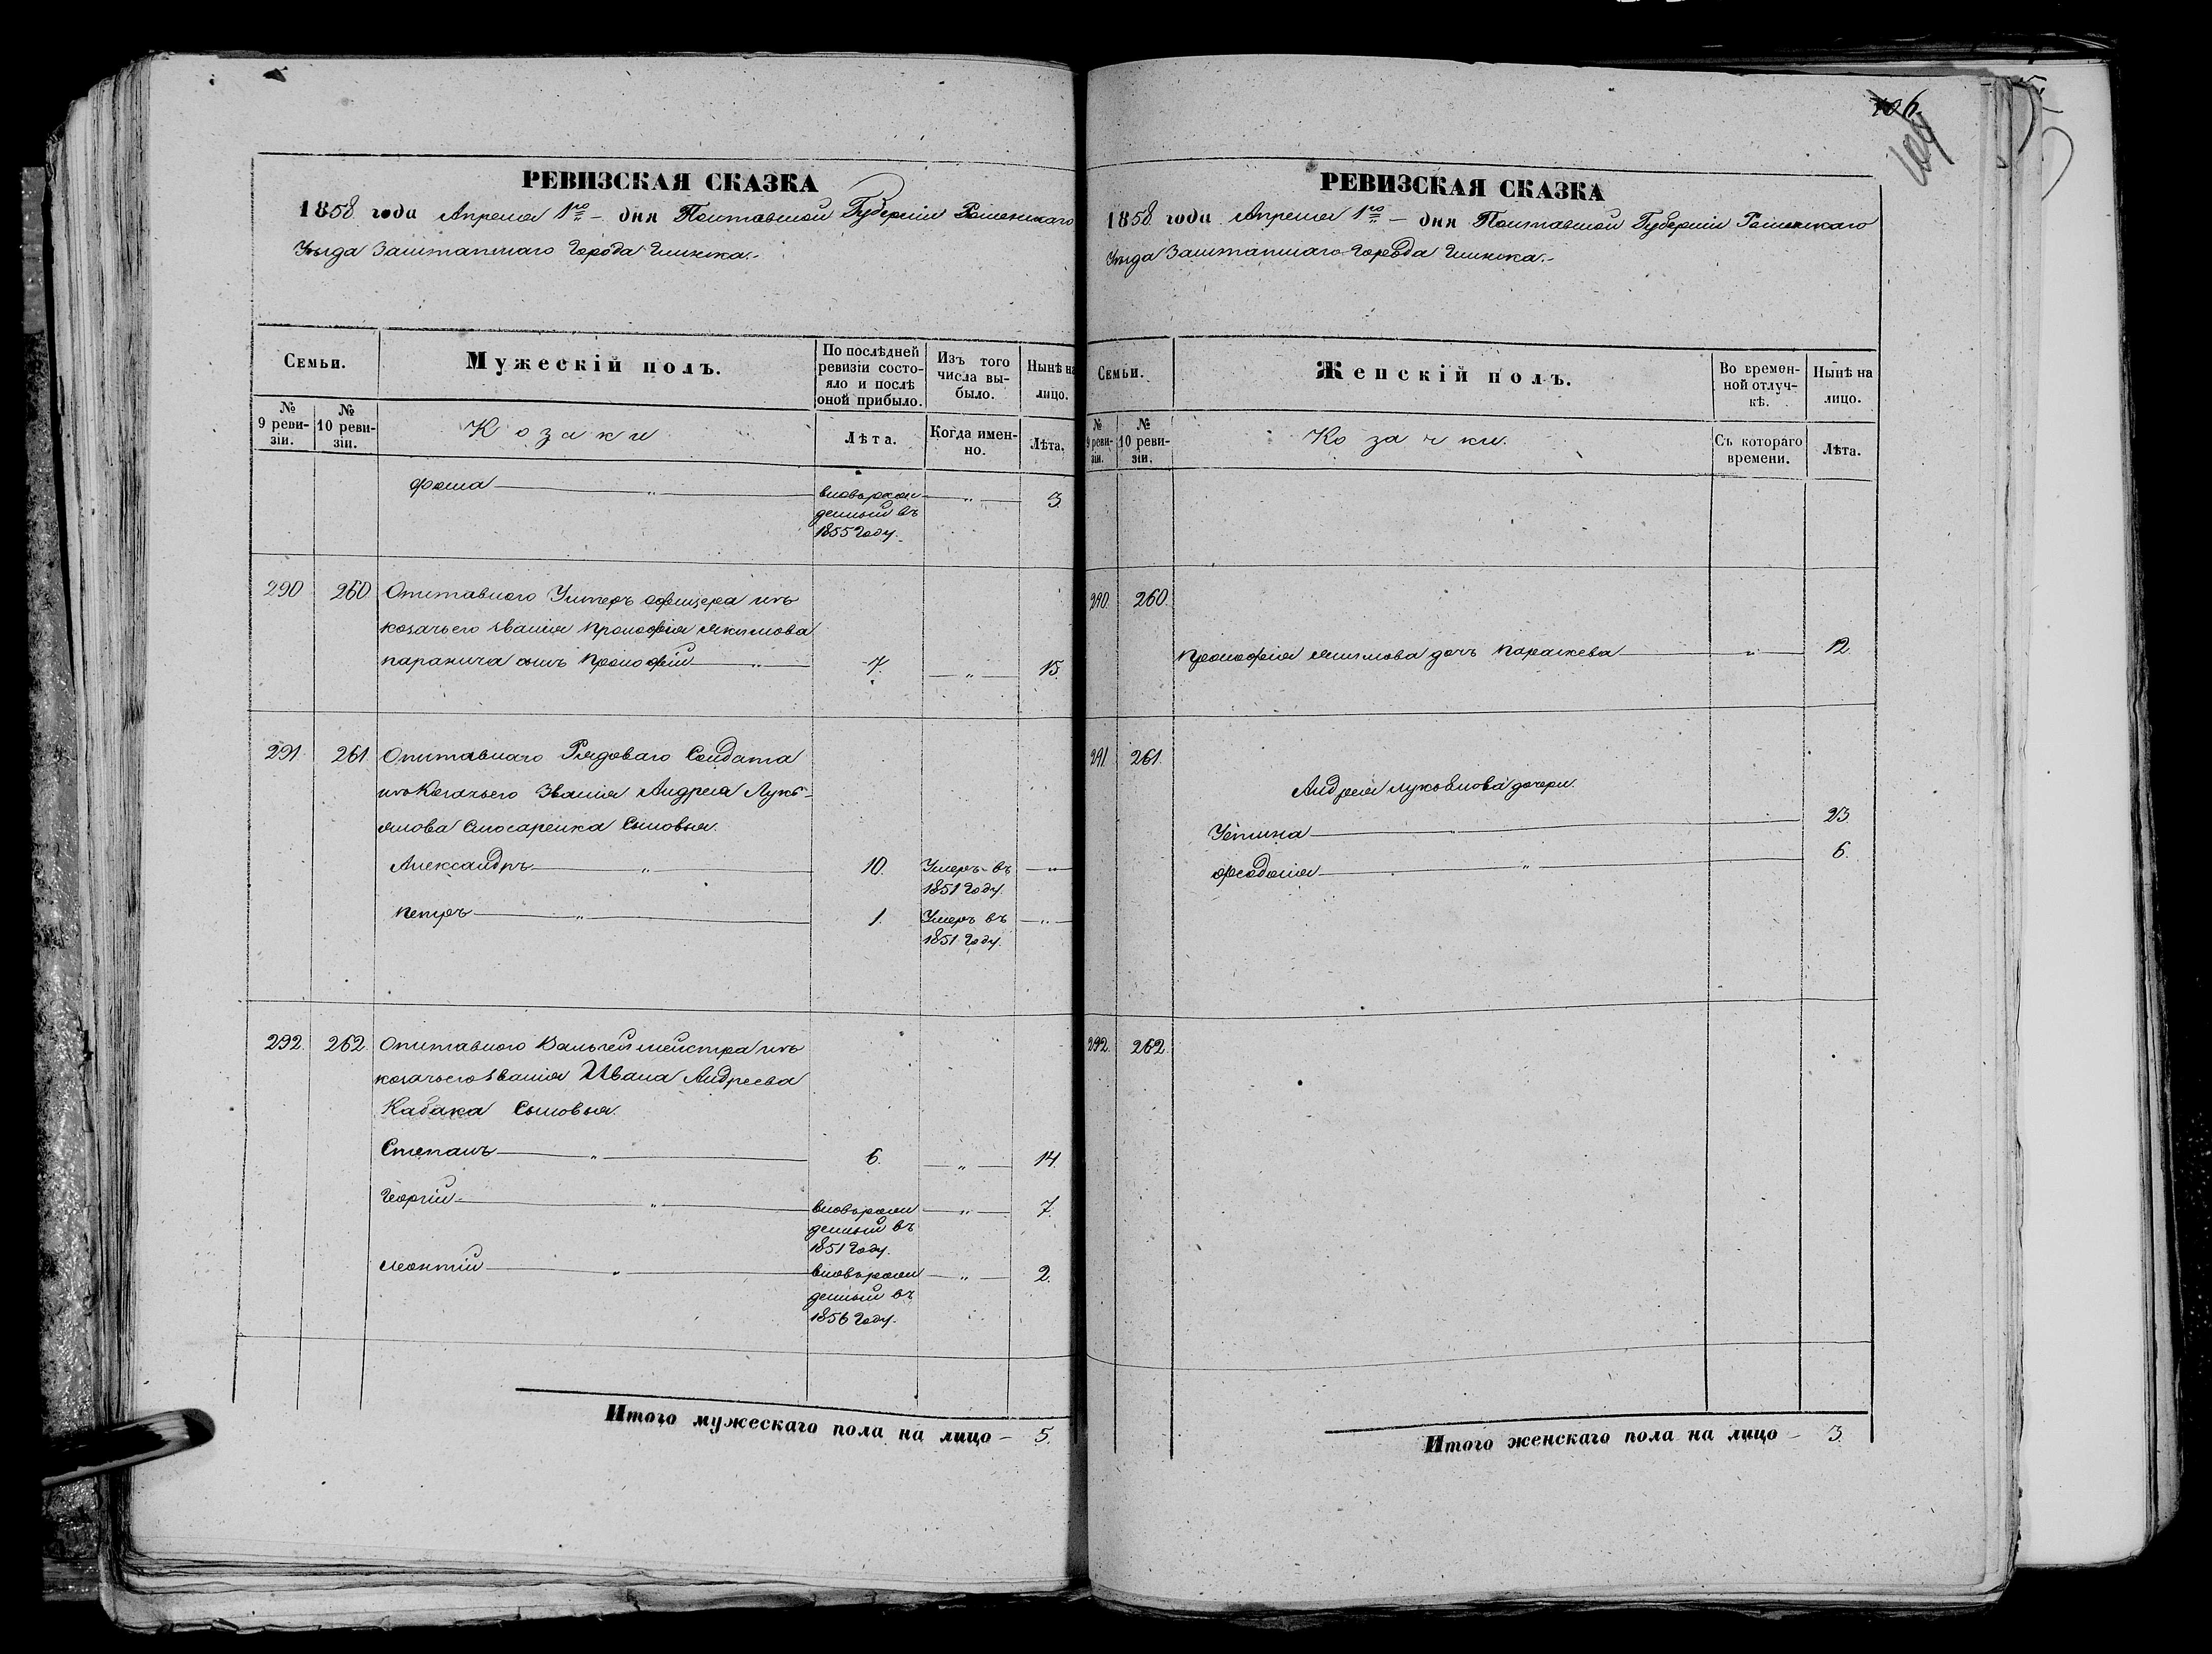 РЕВИЗСКАЯ СКАЗКА
1858 года Апреля 1го дня Полтавской Губерніи Роменскаго
Уѣзда Заштатнаго Города Глинска.
Семьи.
Мужескій полъ.
По послѣдней ревизіи состо-
яло и послѣ
оной прибыло.
Изъ того
числа вы-
было.
Нынѣ на
лицо.
№
9 реви-
зіи.
№
10 реви-
зіи.
Козаки
Лѣта.
Когда имен-
но.
Лѣта.
Фома — " — вноворож- — " — 3.
денный въ
1855 Году.
290 260 Отставного Унтеръ офицера изъ
козачьего званія Прокофія Якимова
паранича сынъ Прокофій — " — 7. — " — 15.
291. 261. Отставнаго Рядоваго Солдата
изъ Козачьего Званія Андрея Лукъ-
янова Слюсаренка Сыновья.
Александръ — " — 10. Умеръ въ — " —
1851 Году.
Петръ — " — 1. Умеръ въ — " —
1851 Году.
292. 262. Отставного Вальтейместра изъ
козачьего званія Ивана Андреева
Кабака Сыновья.
Степанъ — " — 6. — " — 14.
Георгій — " — вноворож — " — 7.
денный въ
1851 Году.
Леонтій — " — вноворож — " — 2.
денный въ
1856 Году.
Итого мужескаго пола на лицо — 5.
106.
104
РЕВИЗСКАЯ СКАЗКА
1858 года Апреля 1го дня Полтавской Губерніи Роменскаго
Уѣзда Заштатнаго Города Глинска.
Семьи.
Женскій полъ.
Во времен-
ной отлуч-
кѣ.
Нынѣ на
лицо.
№
9 реви-
зіи.
№
10 реви-
зіи.
Козачки.
Съ котораго
времени.
Лѣта.
290. 260.
Прокофія Якимова дочь Параскева — " — 12.
291. 261.
Андрея Лукьянова дочери.
Устина — " — 23
Феодосія — " — 6.
292. 262.
Итого женскаго пола на лицо — 3.